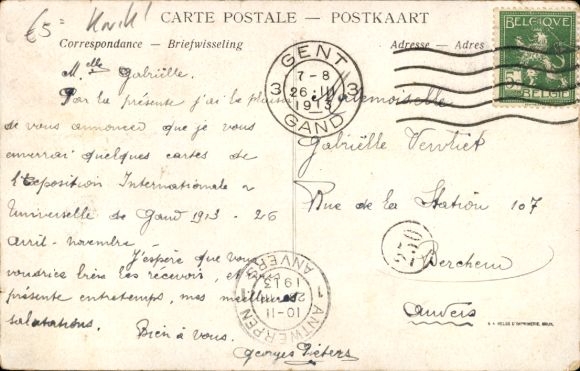 €5=
CARTE POSTALE — POSTKAART
Correspondance — Briefwisseling
Adresse — Adres
BELGIQUE
5
BELGIË
3 GENT 3
7-8
26 III
1913
GAND
Melle Gabriëlle.
Par la présente j'ai le plaisir
de vous annoncer que je vous
enverrai quelques cartes de
l'Exposition Internationale &
Universelle de Gand 1913 - 26
avril - novembre
J'espère que vous
voudriez bien les recevoir, et
présente entretemps, mes meilleures
salutations.
Bien à vous.
Georges Pieters
Mademoiselle
Gabriëlle
Rue de la Station 107
Berchem
Anvers
250
1 ANTWERPEN 1
10-11
1913
ANVERS